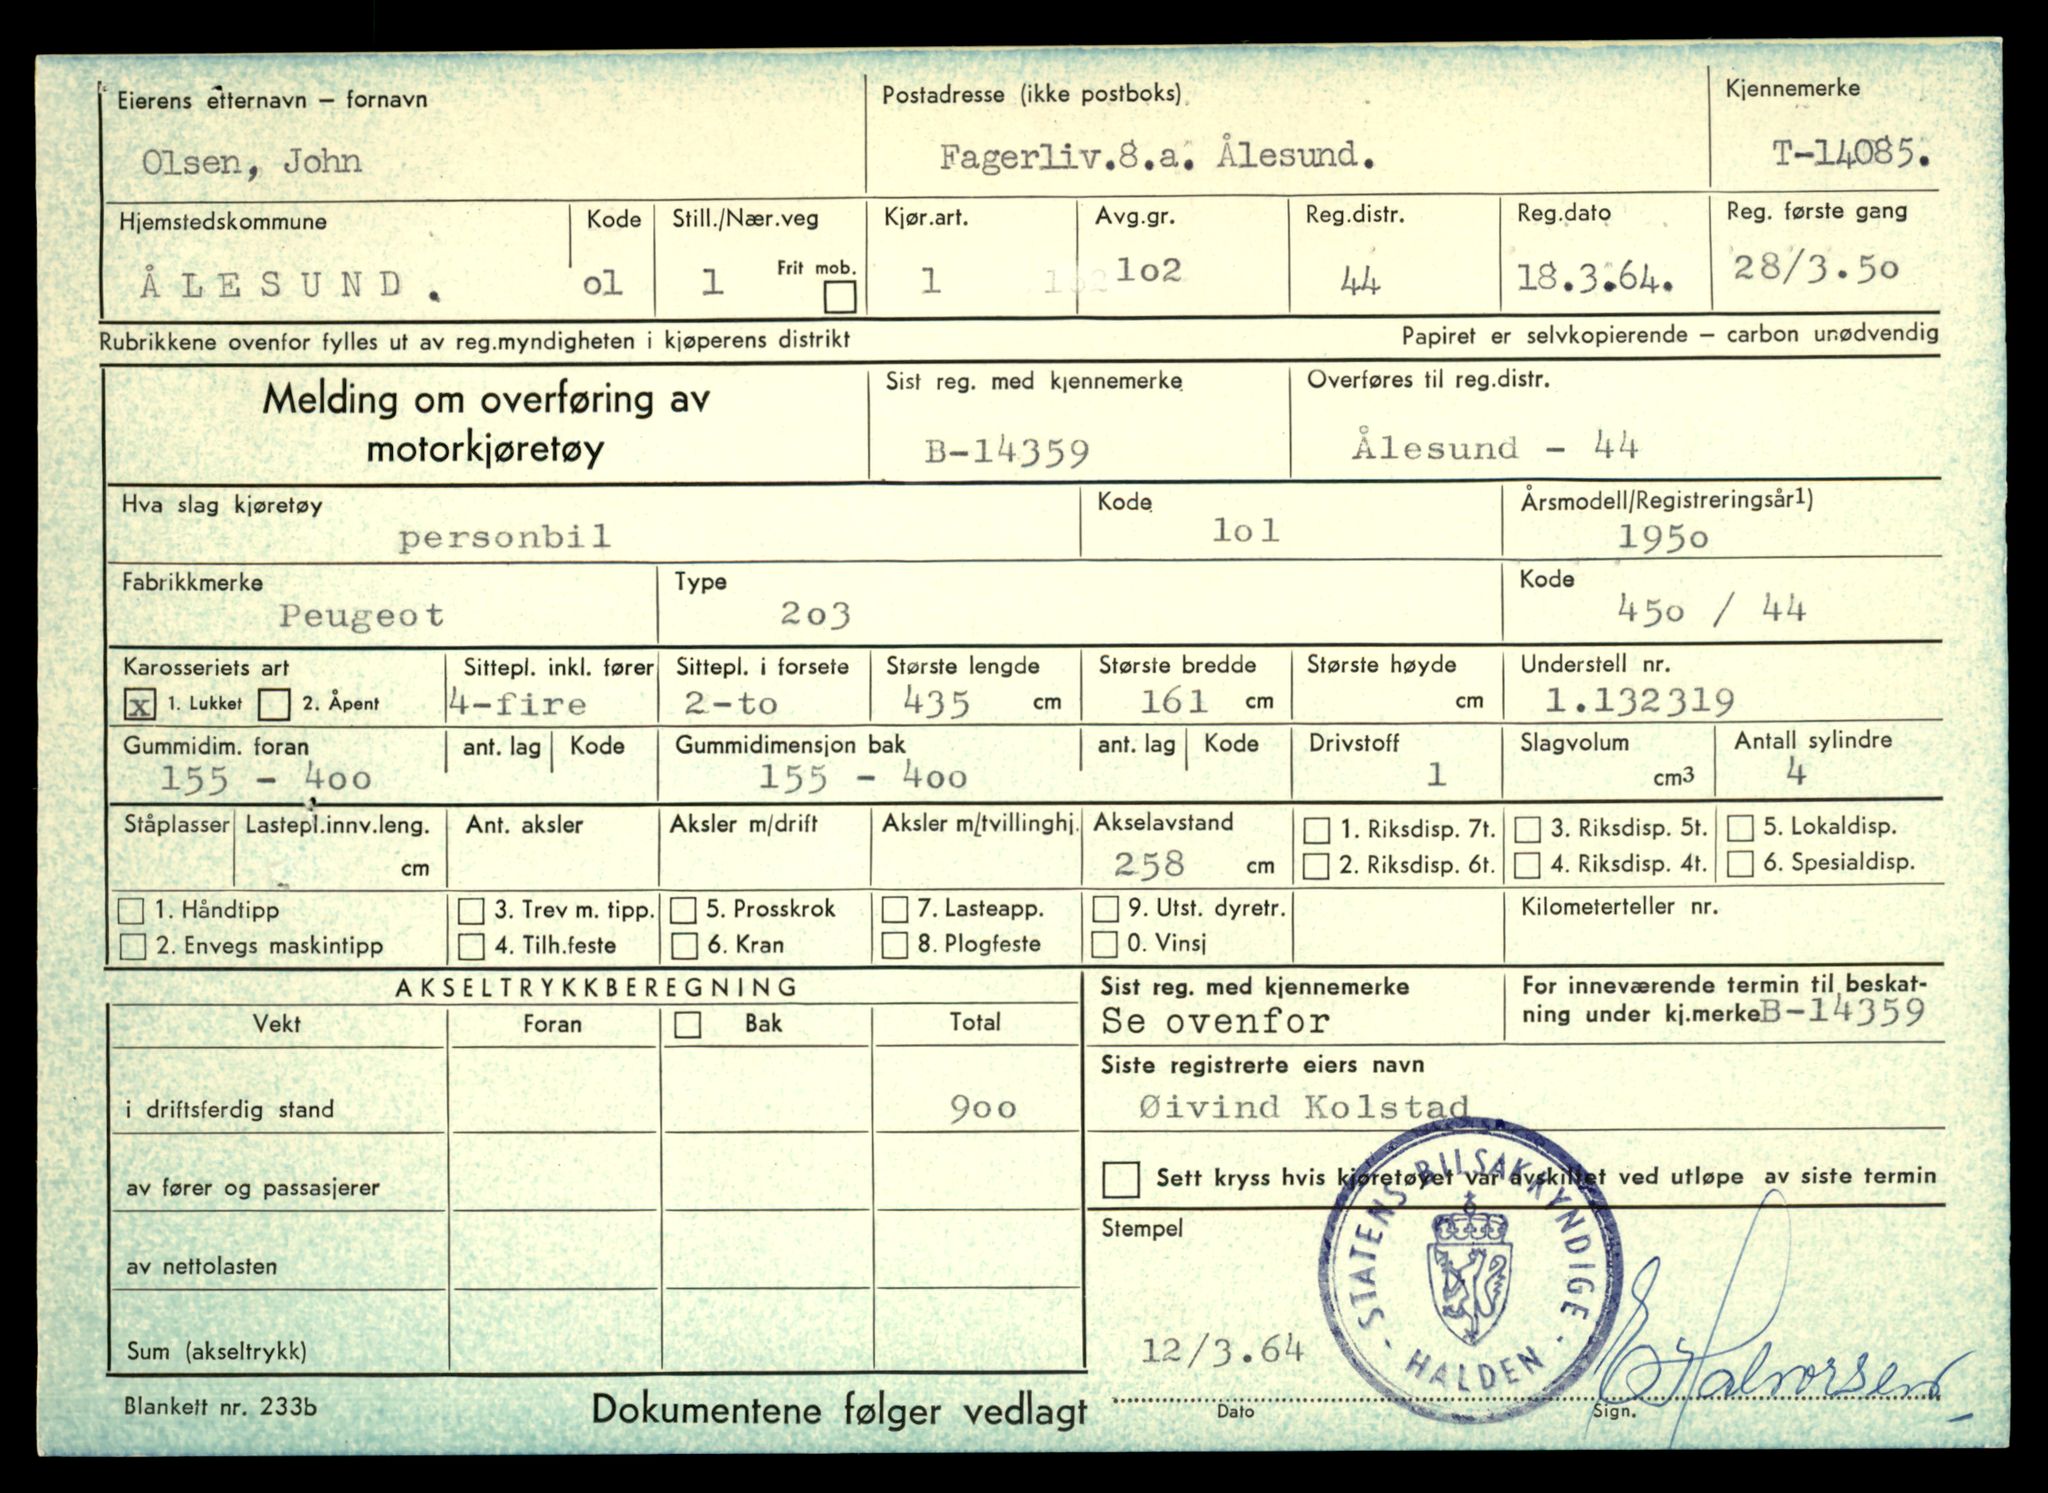 Eierens etternavn – fornavn Postadresse (ikke postboks) Kjennemerke
Olsen, John Fagerliv.8.a. Ålesund. T-14085.
Hjemstedskommune Kode Still./Nær.veg Kjør.art. Avg.gr. Reg.distr. Reg.dato Reg. første gang
ÅLESUND. o1 1 Frit mob. 1 1o2 44 18.3.64. 28/3.5o
Rubrikkene ovenfor fylles ut av reg.myndigheten i kjøperens distrikt Papiret er selvkopierende – carbon unødvendig
Melding om overføring av Sist reg. med kjennemerke Overføres til reg.distr.
motorkjøretøy B-14359 Ålesund - 44
Hva slag kjøretøy Kode Årsmodell/Registreringsår1)
personbil 1o1 195o
Fabrikkmerke Type Kode
Peugeot 2o3 45o / 44
Karosseriets art Sittepl. inkl. fører Sittepl. i forsete Største lengde Største bredde Største høyde Understell nr.
x 1. Lukket 2. Åpent 4-fire 2-to 435 cm 161 cm cm 1.132319
Gummidim. foran ant. lag Kode Gummidimensjon bak ant. lag Kode Drivstoff Slagvolum Antall sylindre
155 - 4oo 155 - 4oo 1 cm3 4
Ståplasser Lastepl.innv.leng. Ant. aksler Aksler m/drift Aksler m/tvillinghj. Akselavstand 1. Riksdisp. 7t. 3. Riksdisp. 5t. 5. Lokaldisp.
cm 258 cm 2. Riksdisp. 6t. 4. Riksdisp. 4t. 6. Spesialdisp.
1. Håndtipp 3. Trev m. tipp. 5. Prosskrok 7. Lasteapp. 9. Utst. dyretr. Kilometerteller nr.
2. Envegs maskintipp 4. Tilh.feste 6. Kran 8. Plogfeste 0. Vinsj
AKSELTRYKKBEREGNING Sist reg. med kjennemerke For inneværende termin til beskat-
Vekt Foran Bak Total Se ovenfor ning under kj.merke B-14359
Siste registrerte eiers navn
i driftsferdig stand 9oo Øivind Kolstad
av fører og passasjerer Sett kryss hvis kjøretøyet var avskiltet ved utløpe av siste termin
Stempel
av nettolasten
STATENS BILSAKKYNDIGE
· HALDEN ·
Sum (akseltrykk) 12/3.64 E Halvorsen
Blankett nr. 233b Dokumentene følger vedlagt Dato Sign.